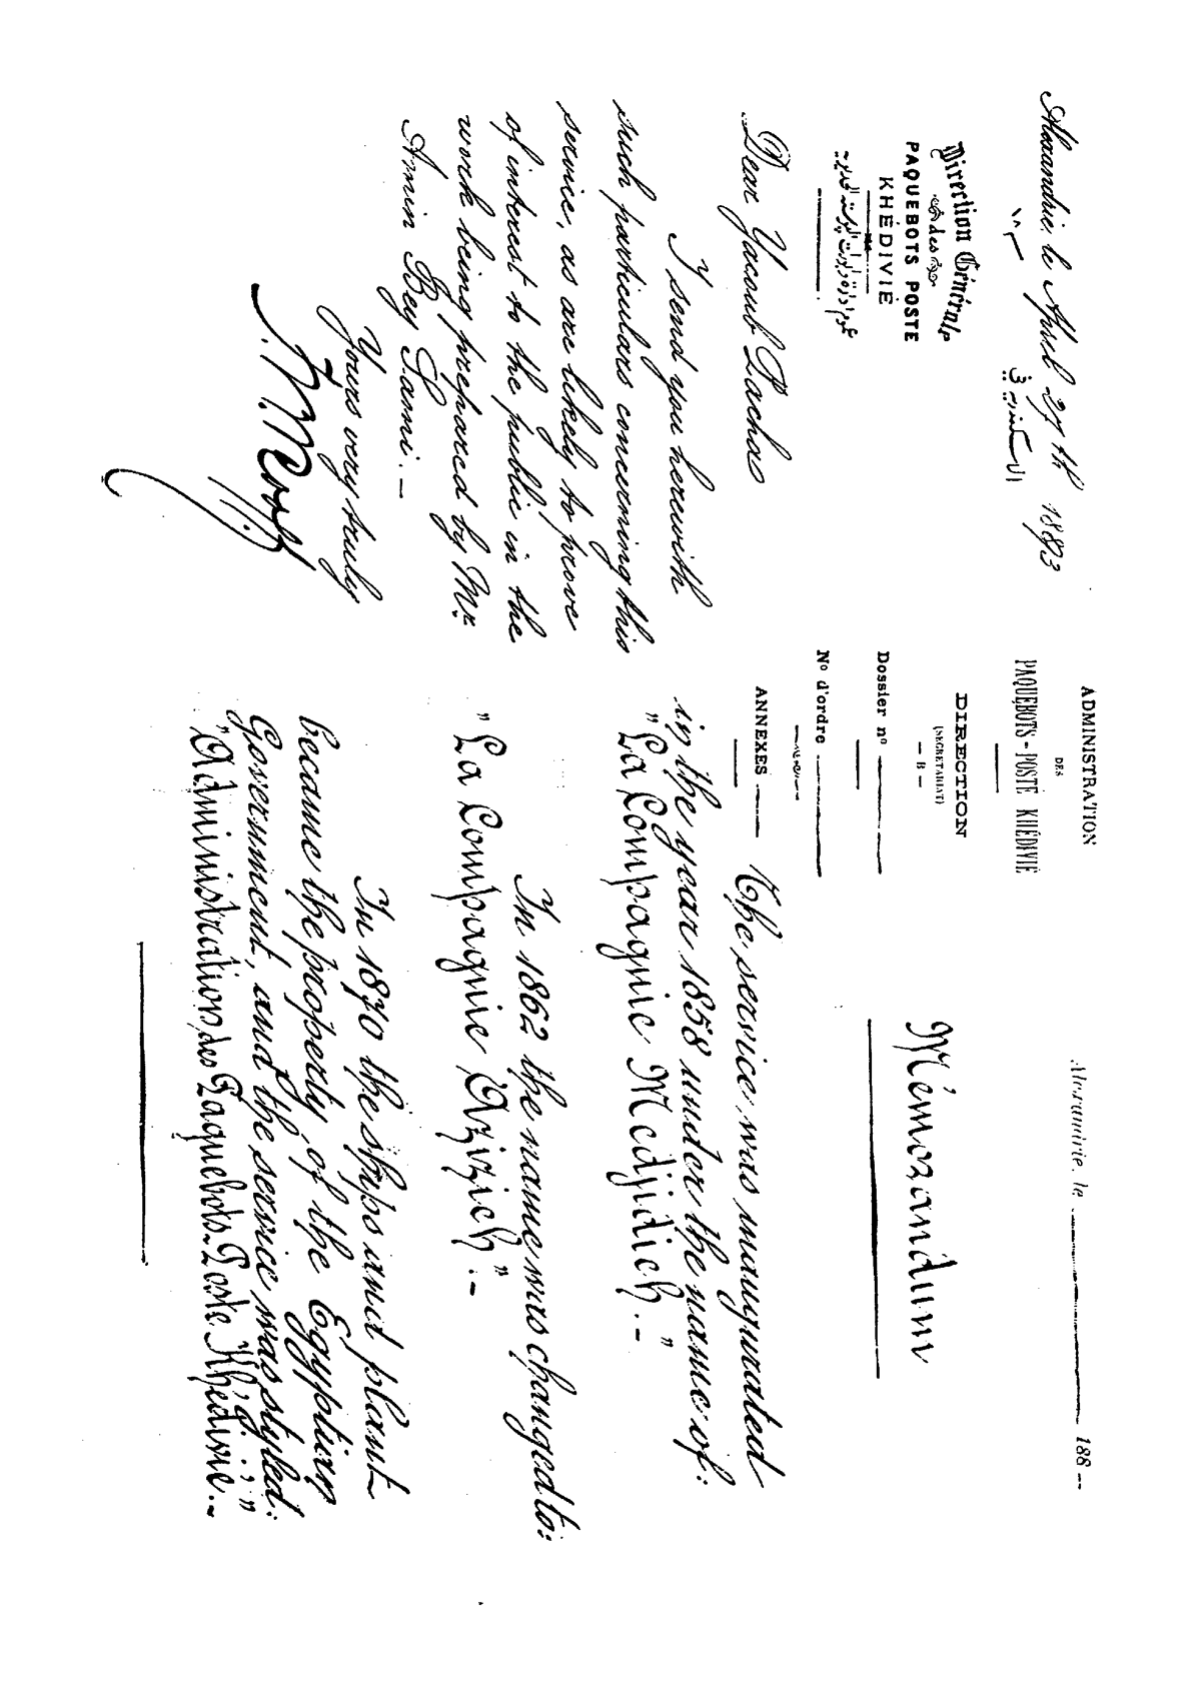 Alexandrie, le April 27th 1893
الاسكندرية فى
١٨
Direction Générale
des
PAQUEBOTS POSTE
KHÉDIVIÉ
Dear Yacoub Pacha
I send you herewith
such particulars concerning this
service, as are likely to prove
of interest to the public in the
work being prepared by Mr.
Amin Bey Sami. —
Yours very truly
ADMINISTRATION
DES
PAQUEBOTS-POSTE KHÉDIVIÉ
DIRECTION
(SECRÉTARIAT)
— B —
Dossier nº
Nº d'ordre
ANNEXES
Alexandrie, le 188 --
Mémorandum
The service was inaugurated
in the year 1858 under the name of:
"La Compagnie Medjidieh." —
In 1862 the name was changed to:
"La Compagnie Azizieh" . —
In 1870 the ships and plant
became the property of the Egyptian
Government, and the service was styled:
"Administration des Paquebots-Poste Khédivié." —